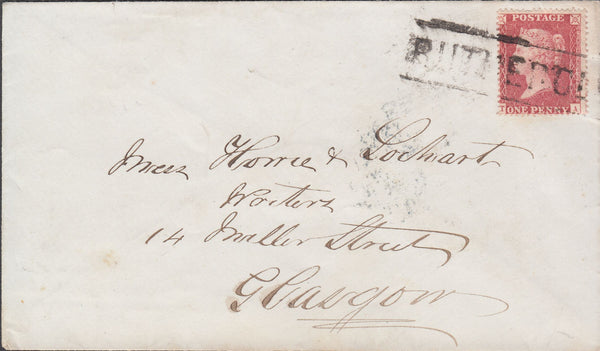 POSTAGE
ONE PENNY
Messrs Howie & Lochart
Writers
14 Miller Street
Glasgow